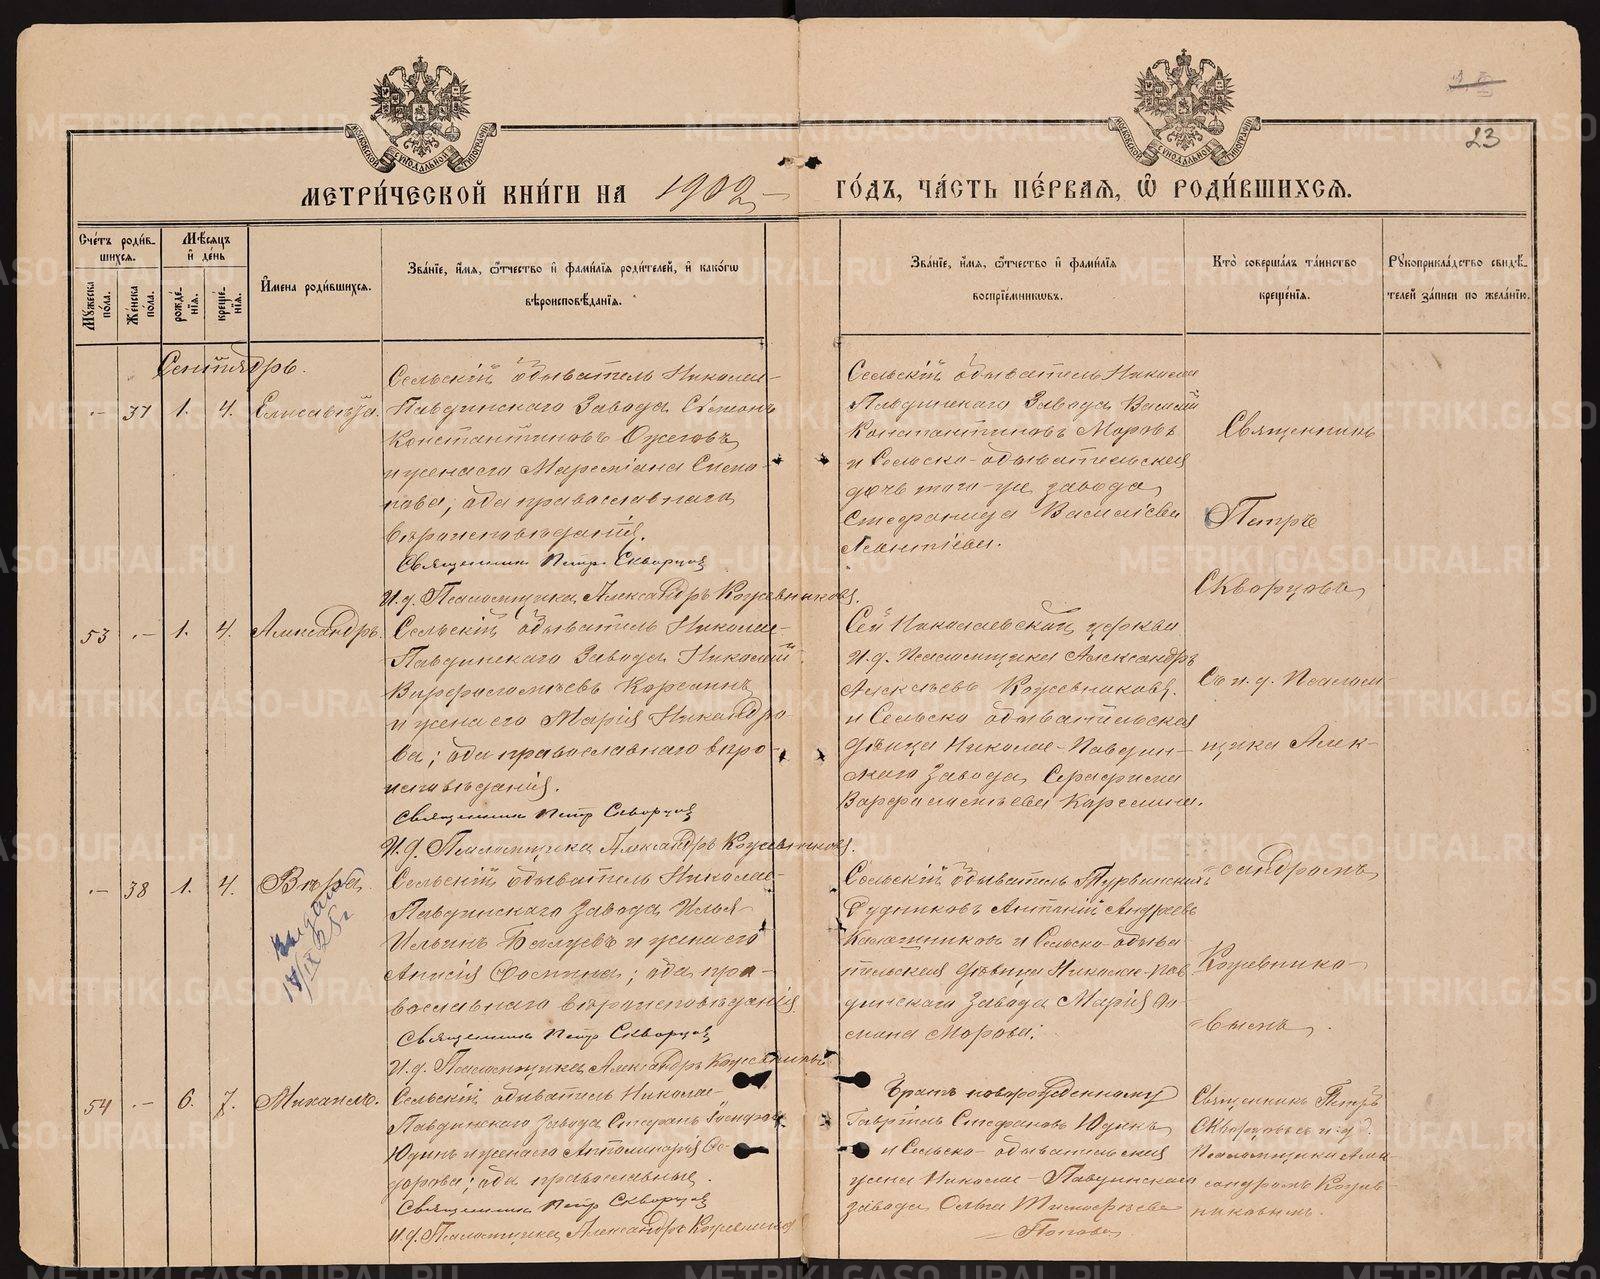 23
МОСКОВСКОЙ СУНОДАЛЬНОЙ ТИПОГРАФИИ
МОСКОВСКОЙ СУНОДАЛЬНОЙ ТИПОГРАФИИ
МЕТРИ́ЧЕСКОЙ КНИ́ГИ НА 1902 ГО́ДЪ, ЧА́СТЬ ПЕ́РВАѦ, Ѡ҆ РОДИ́ВШИХСѦ.
Сче́тъ роди́в-
шихсѧ.
Мꙋжеска по́ла.
Же́нска по́ла.
Мѣ́сѧцъ и҆ де́нь
рожде́-
нїѧ.
креще́-
нїѧ.
И҆мена̀ роди́вшихсѧ.
Зва́нїе, и҆́мѧ, ѻ҆́тчество и҆ фами́лїѧ роди́телей, и҆ како́гѡ
вѣроисповѣ́данїѧ.
Зва́нїе, и҆́мѧ, ѻ҆́тчество и҆ фами́лїѧ
воспрїе́мникѡвъ.
Кто̀ соверша́лъ та́инство
креще́нїѧ.
Рꙋкоприкла́дство свидѣ́-
телей за́писи по жела́нїю.
Сентябрь.
— 37 1. 4. Елисавета.
Сельскій обыватель Николае-
Павдинскаго Завода Симеонъ
Константиновъ Ожеговъ
и жена его
; оба православнаго
вѣроисповѣданія.
Священникъ Петр Скворцов
И.д. Псаломщика Александръ Кожевниковъ.
Сельскій обыватель Николае
Павдинскаго Завода Василій
Константиновъ Моровъ
и Сельско-обывательская
дочь того-же завода
Стефанида Васильева
Леонтіева.
Священникъ
Петръ
Скворцовъ
53 — 1. 4. Александръ.
Сельскій обыватель Николае-
Павдинскаго Завода Николай
Варфоломѣевъ Карелинъ
и жена его Марія Никандро-
ва; оба православнаго вѣро-
исповѣданія.
Священникъ Петр Скворцов
И.д. Псаломщика Александръ Кожевниковъ.
Сей Николаевской церкви
И.д. Псаломщика Александръ
Алексѣевъ Кожевниковъ
и Сельско обывательская
дѣвица Николае-Павдин-
скаго Завода Серафима
Варфоломѣева Карелина.
Съ и.д. Псалом-
щика Алек-
сандромъ
— 38 1. 4. Вѣра.
Выдан
17/IX 28 г
Сельскій обыватель Николае-
Павдинскаго Завода Илья
Ильинъ Балуевъ и жена его
Анисія Фомина; оба пра-
вославнаго вѣроисповѣданія
Священникъ Петр Скворцов
И.д. Псаломщика Александръ Кожевниковъ
Сельскій обыватель Турьинскихъ
Рудниковъ Антоній Андреевъ
Калашниковъ и Сельско-обыва-
тельская дѣвица Николае-Пав-
динскаго Завода Марія
Морова.
Кожевнико-
вымъ.
54 — 6. 7. Михаилъ.
Сельскій обыватель Николае-
Павдинскаго Завода Стефанъ
Юдинъ и жена его Апполинарія Фе-
дорова; оба православные.
Священникъ Петр Скворцов
И.д. Псаломщика Александръ Кожевников
Братъ новорожденному
Гавріилъ Стефановъ Юдинъ
и Сельско-обывательская
жена Николае-Павдинскаго
завода Ольга Тимофѣева
Попова
Священникъ Петръ
Скворцовъ съ и.д.
Псаломщика Алек-
сандромъ Кожев-
никовымъ.
METRIKI.GASO-URAL.RU